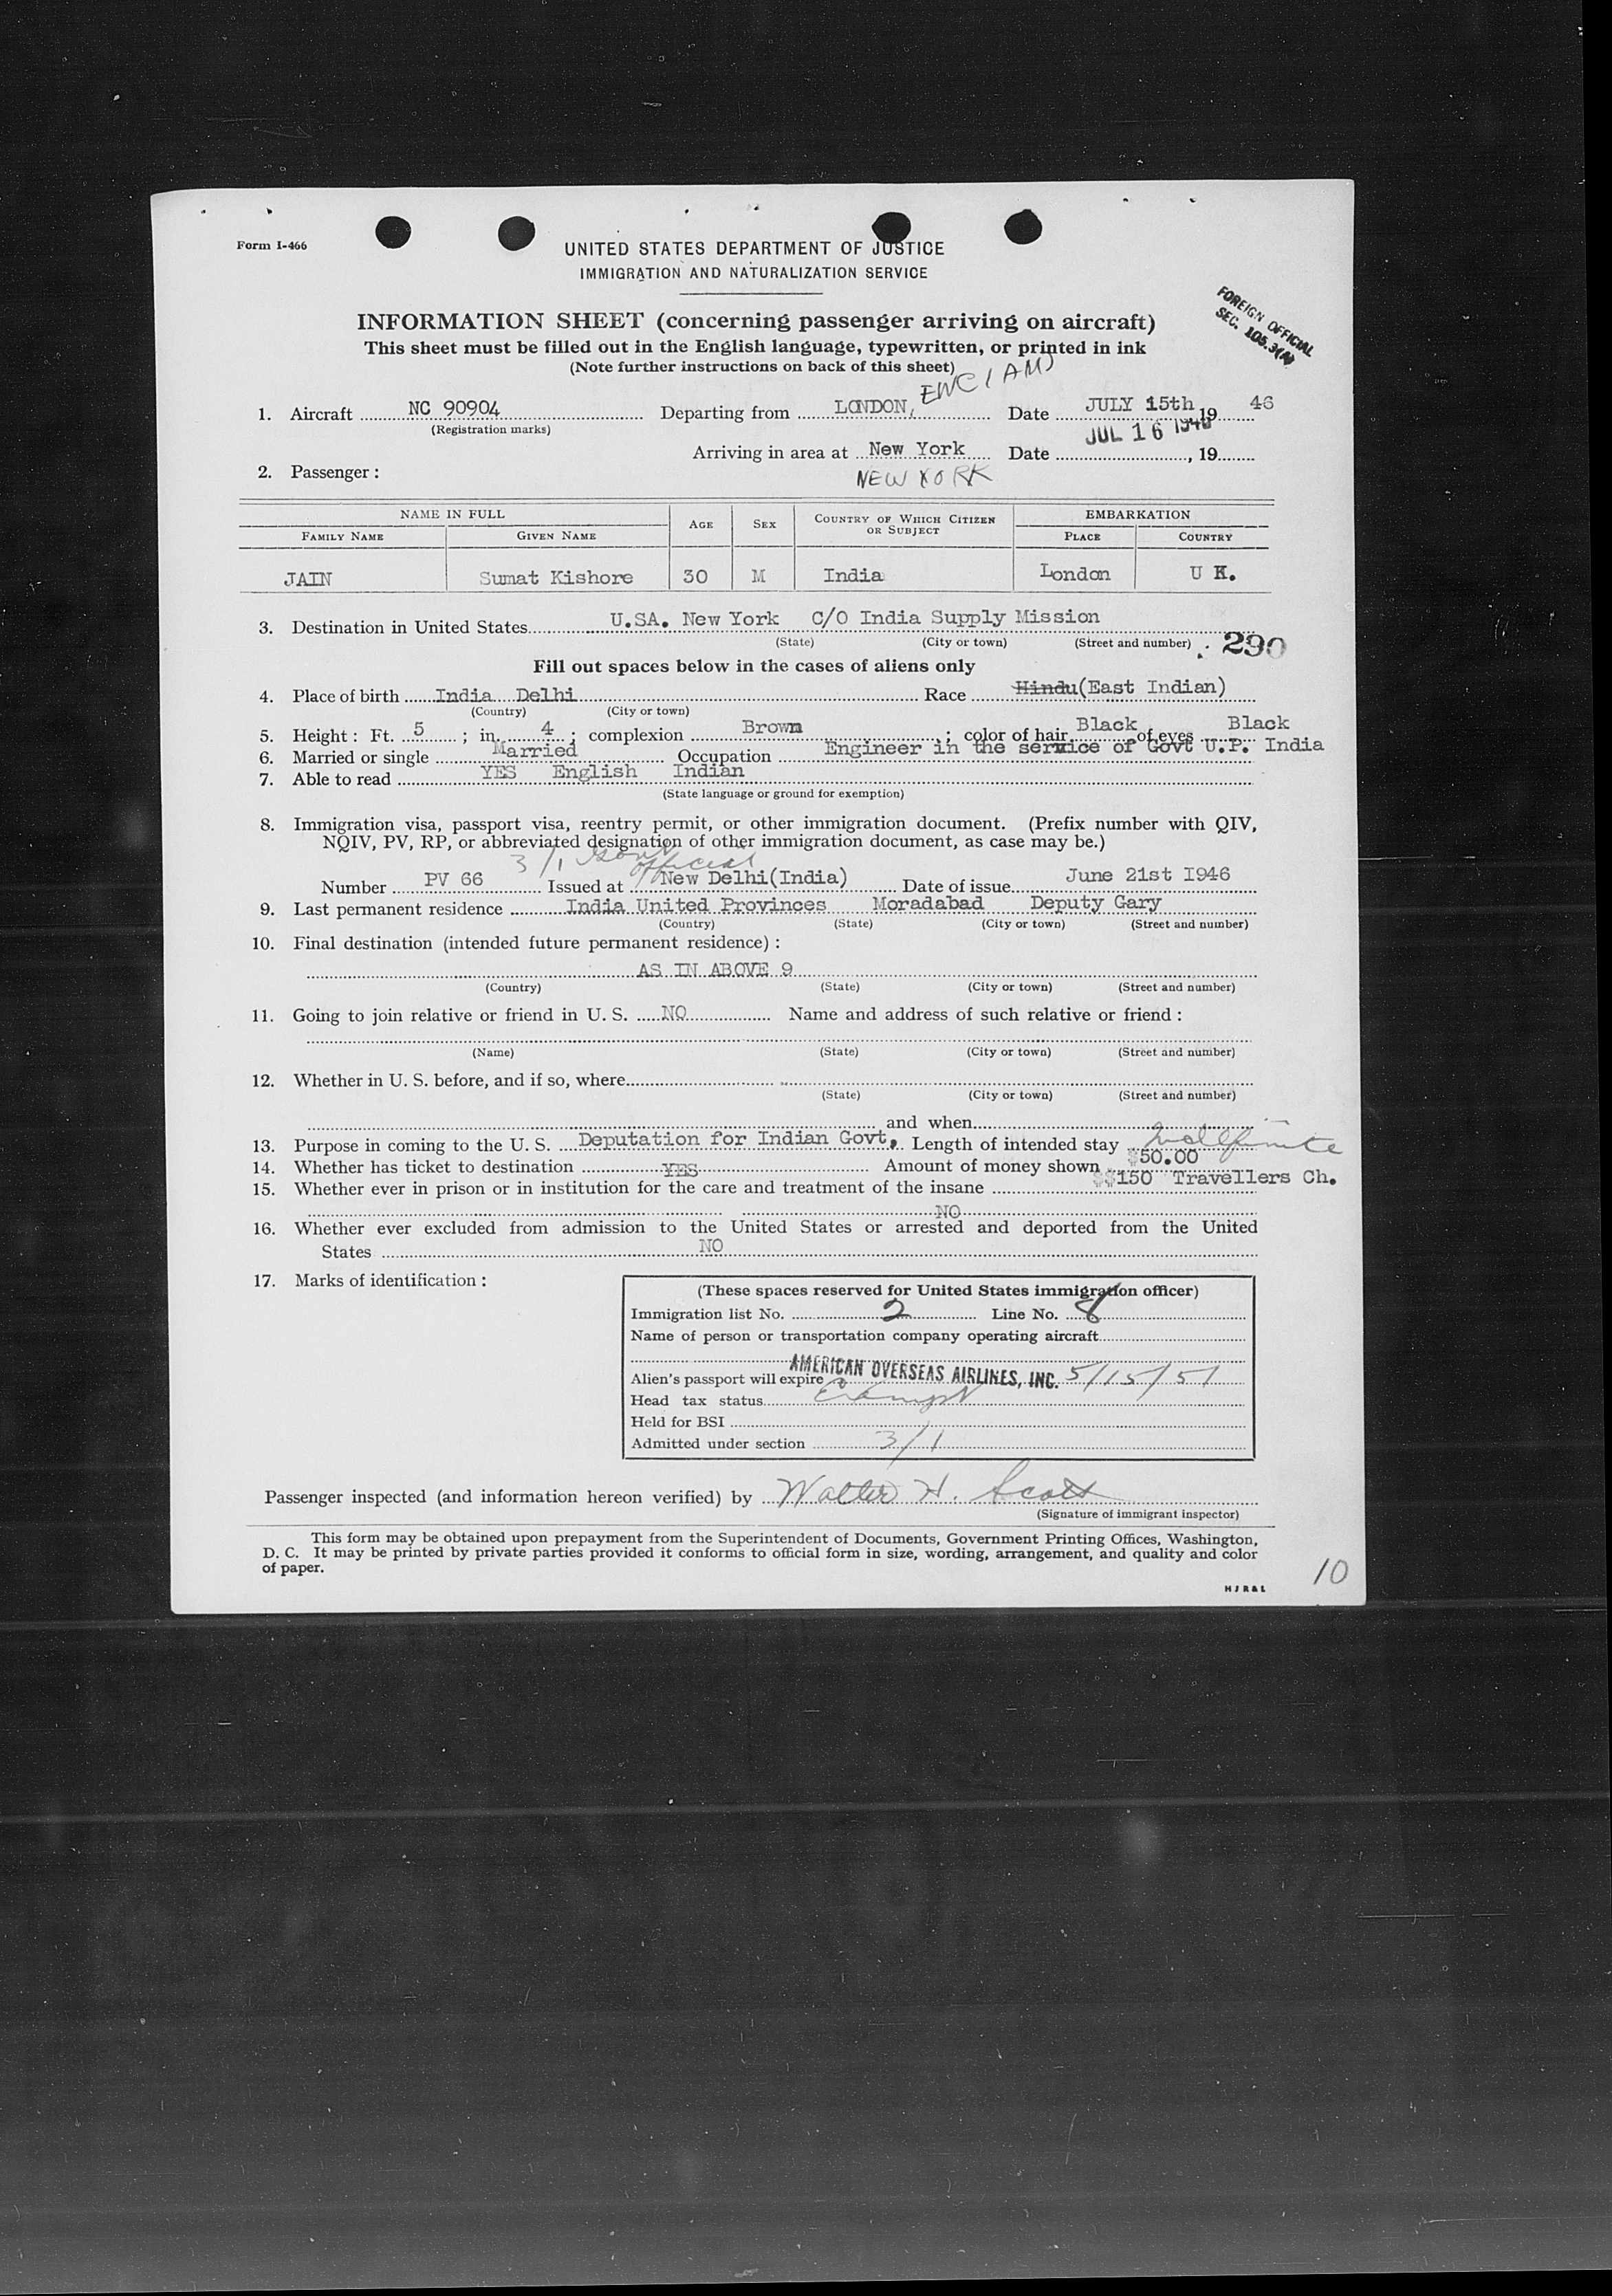 Form I-466
UNITED STATES DEPARTMENT OF JUSTICE
IMMIGRATION AND NATURALIZATION SERVICE
FOREIGN OFFICIAL
SEC. 105.3(A)
INFORMATION SHEET (concerning passenger arriving on aircraft)
This sheet must be filled out in the English language, typewritten, or printed in ink
(Note further instructions on back of this sheet)
1. Aircraft NC 90904 Departing from LONDON, Date JULY 15th, 19 46
(Registration marks)
JUL 16 1946
Arriving in area at New York Date , 19
2. Passenger :
NEW YORK
NAME IN FULL AGE SEX COUNTRY OF WHICH CITIZEN OR SUBJECT EMBARKATION
FAMILY NAME GIVEN NAME PLACE COUNTRY
JAIN Sumat Kishore 30 M India London U K.
3. Destination in United States U.SA. New York C/O India Supply Mission
(State) (City or town) (Street and number) 290
Fill out spaces below in the cases of aliens only
4. Place of birth India Delhi Race Hindu(East Indian)
(Country) (City or town)
5. Height : Ft. 5 ; in. 4 ; complexion Brown ; color of hair Black of eyes Black
6. Married or single Married Occupation Engineer in the service of Govt U.P. India
7. Able to read YES English Indian
(State language or ground for exemption)
8. Immigration visa, passport visa, reentry permit, or other immigration document. (Prefix number with QIV,
NQIV, PV, RP, or abbreviated designation of other immigration document, as case may be.)
3/1 Govt official
Number PV 66 Issued at New Delhi(India) Date of issue June 21st I946
9. Last permanent residence India United Provinces Moradabad Deputy Gary
(Country) (State) (City or town) (Street and number)
10. Final destination (intended future permanent residence) :
AS IN ABOVE 9
(Country) (State) (City or town) (Street and number)
11. Going to join relative or friend in U. S. NO Name and address of such relative or friend :
(Name) (State) (City or town) (Street and number)
12. Whether in U. S. before, and if so, where
(State) (City or town) (Street and number)
and when
13. Purpose in coming to the U. S. Deputation for Indian Govt. Length of intended stay Indefinite
14. Whether has ticket to destination YES Amount of money shown $50.00
$$150 Travellers Ch.
15. Whether ever in prison or in institution for the care and treatment of the insane
NO
16. Whether ever excluded from admission to the United States or arrested and deported from the United
States NO
17. Marks of identification :
(These spaces reserved for United States immigration officer)
Immigration list No. 2 Line No. 8
Name of person or transportation company operating aircraft
AMERICAN OVERSEAS AIRLINES, INC.
Alien's passport will expire 5/15/51
Head tax status Exempt
Held for BSI
Admitted under section 3/1
Passenger inspected (and information hereon verified) by Walter H. Scott
(Signature of immigrant inspector)
This form may be obtained upon prepayment from the Superintendent of Documents, Government Printing Offices, Washington,
D. C. It may be printed by private parties provided it conforms to official form in size, wording, arrangement, and quality and color
of paper.
H J R & L
10